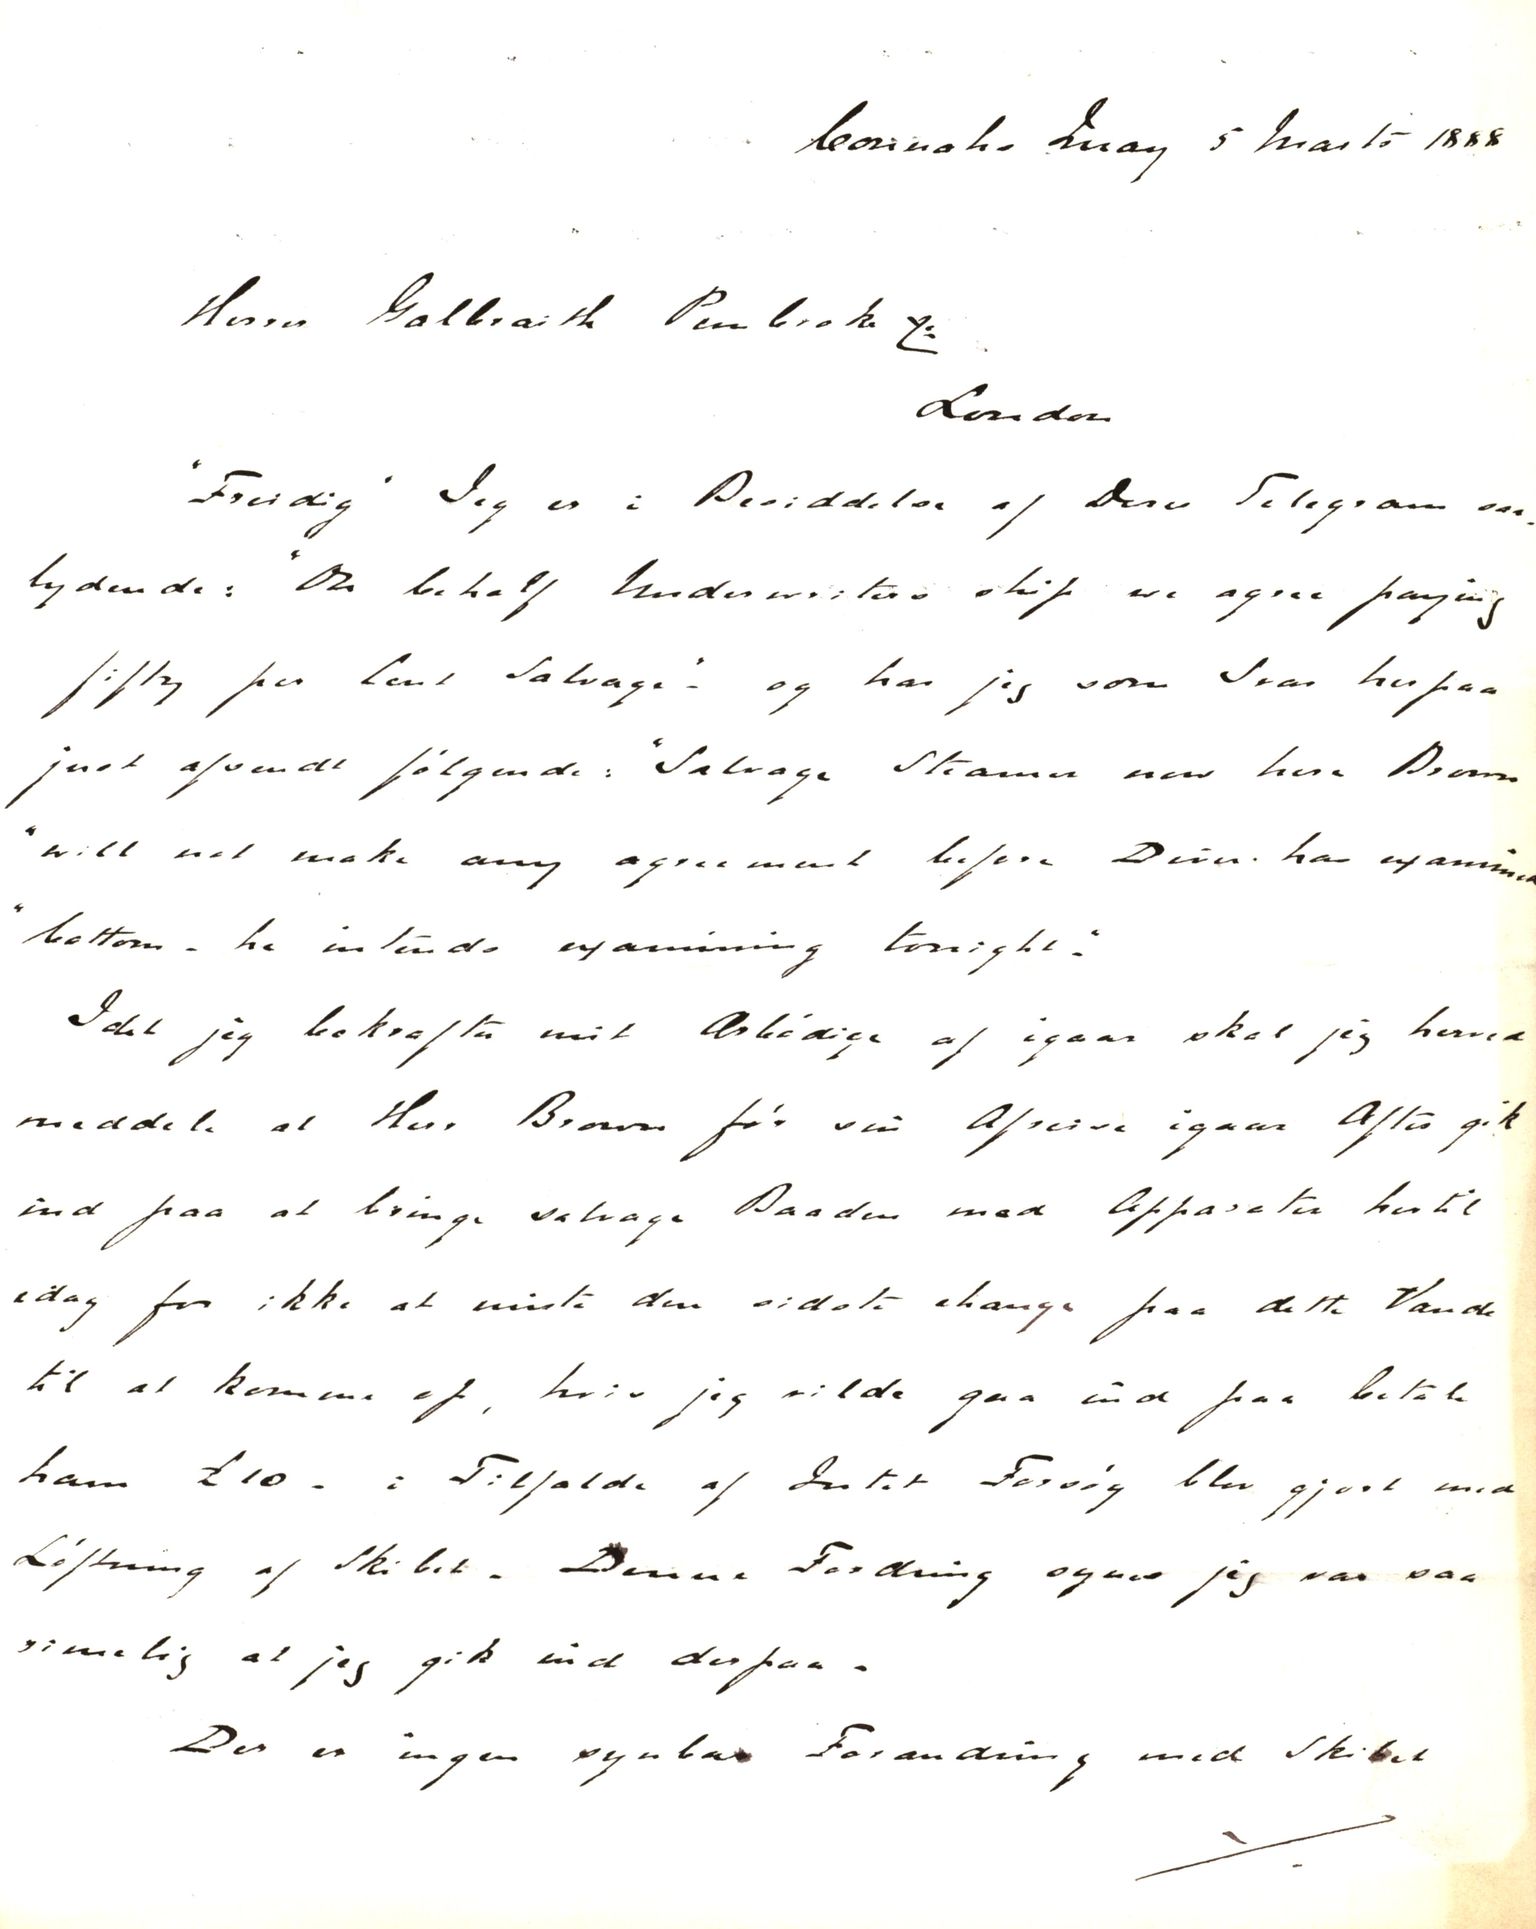 Connahs Quay 5 Marts 1888
Herrer Galbraith Pembroke & Co
London
"Freidig" Jeg er i Besiddelse af Deres Telegram saa-
lydende: "On behalf Underwriters ship we agree paying
fifty per Cent Salvage"- og har jeg som Svar herpaa
just afsendt følgende: "Salvage Steamer now here Brown
"will not make any agreement before Diver has examined
"bottom - he intends examining tonight".
Idet jeg bekrafter mit Ærbödige af igaar skal jeg herved
meddele at Herr Brown før sin Afreise igaar Aftes gik
ind paa at bringe salvage Baaden med Apparater hertil
idag for ikke at miste den sidste change paa dette Vande
til at komme af, hvis jeg vilde gaa ind paa betale
ham £10 - i Tilfalde af Intet Forsøg blev gjort med
Löftning af Skibet - Denne Fordring synes jeg var saa
rimelig at jeg gik ind derpaa -
Der er ingen synbar Forandring med Skibet